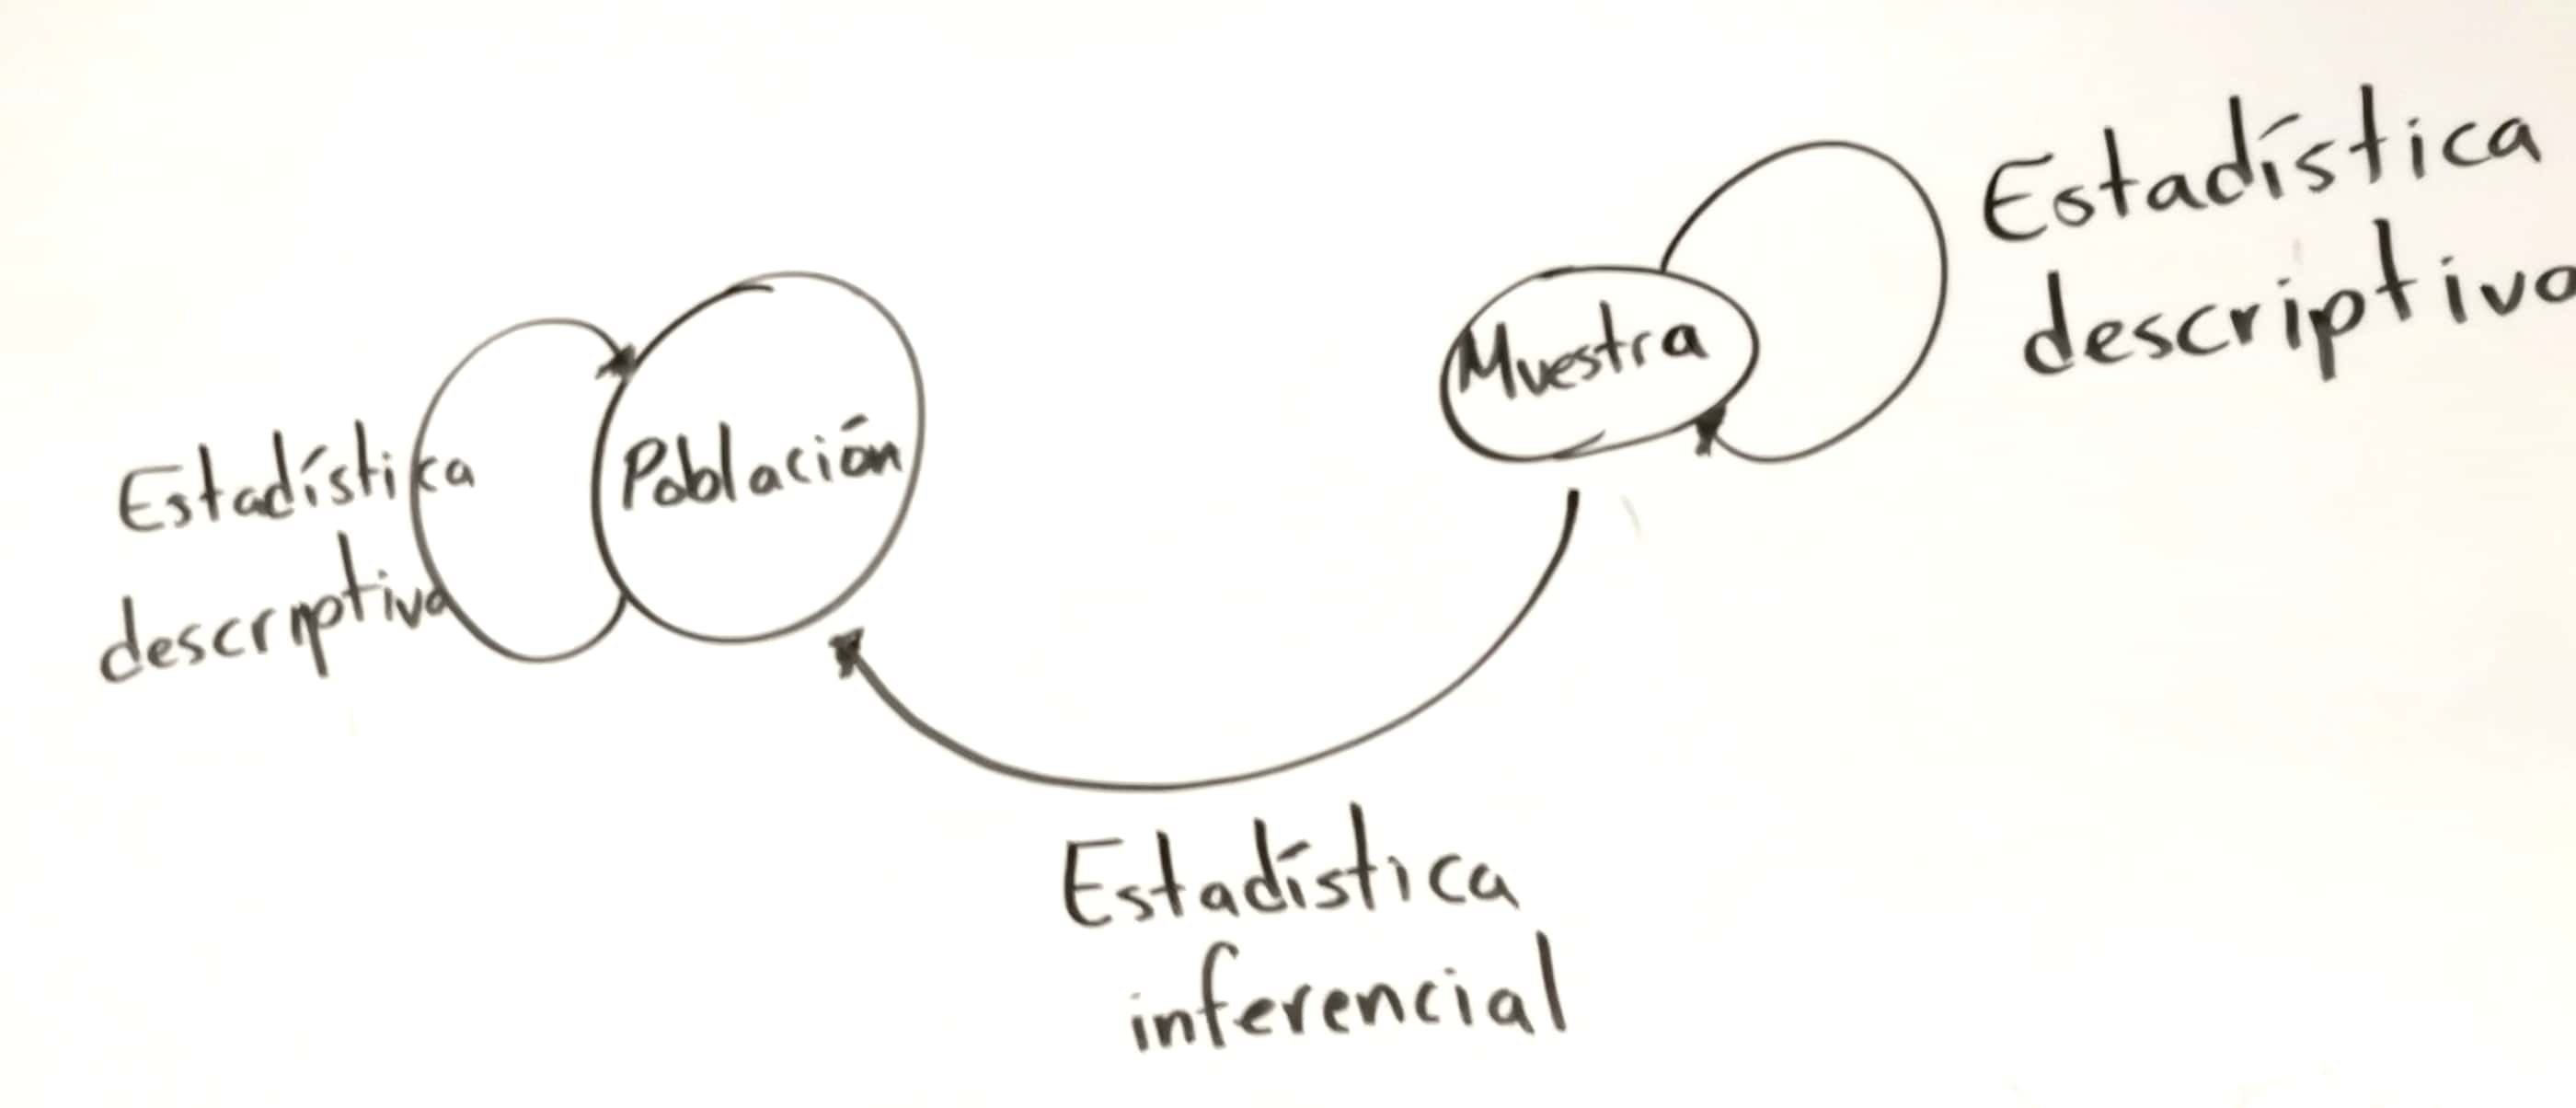 Estadística
descriptiva
Población
Muestra
Estadística
descriptiva
Estadística
inferencial